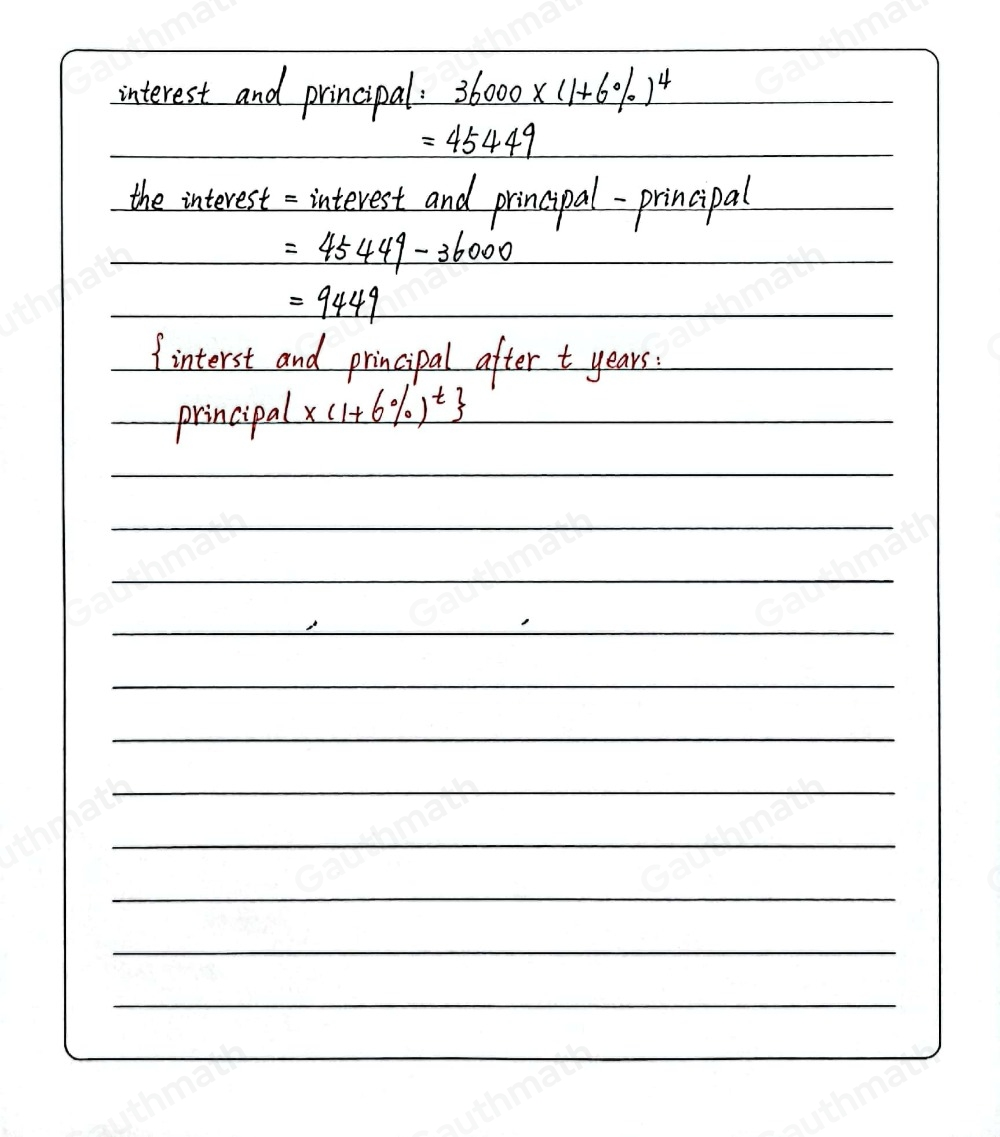 interest and principal: 36000 × (1+6%)^4
= 45449
the interest = interest and principal - principal
= 45449 - 36000
= 9449
{interst and principal after t years:
principal × (1+6%)^t}
Gauthmath